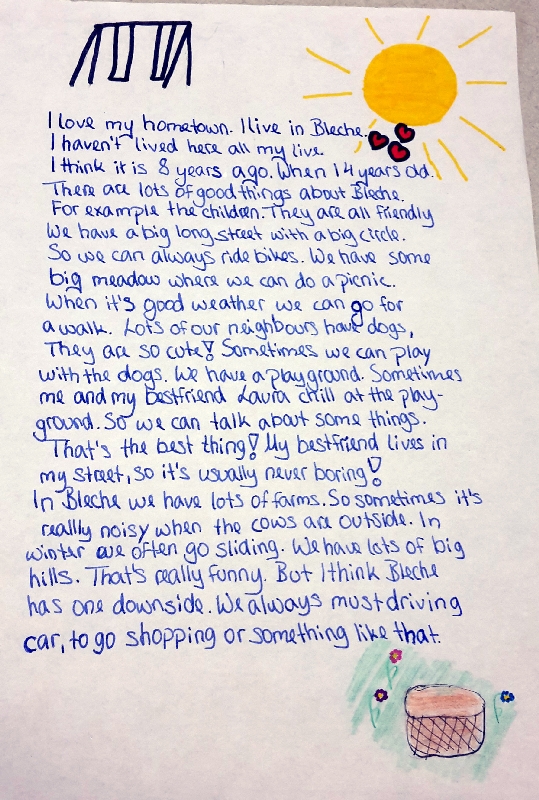 I love my hometown. I live in Bleche.
I haven't lived here all my live.
I think it is 8 years ago. When 14 years old.
There are lots of good things about Bleche.
For example the children. They are all friendly
We have a big long street with a big circle.
So we can always ride bikes. We have some
big meadow where we can do a picnic.
When it's good weather we can go for
a walk. Lots of our neighbours have dogs,
They are so cute! Sometimes we can play
with the dogs. We have a playground. Sometimes
me and my bestfriend Laura chill at the play-
ground. So we can talk about some things.
That's the best thing! My bestfriend lives in
my street, so it's usually never boring!
In Bleche we have lots of farms. So sometimes it's
reallly noisy when the cows are outside. In
winter we often go sliding. We have lots of big
hills. That's really funny. But I think Bleche
has one downside. We always must driving
car, to go shopping or something like that.